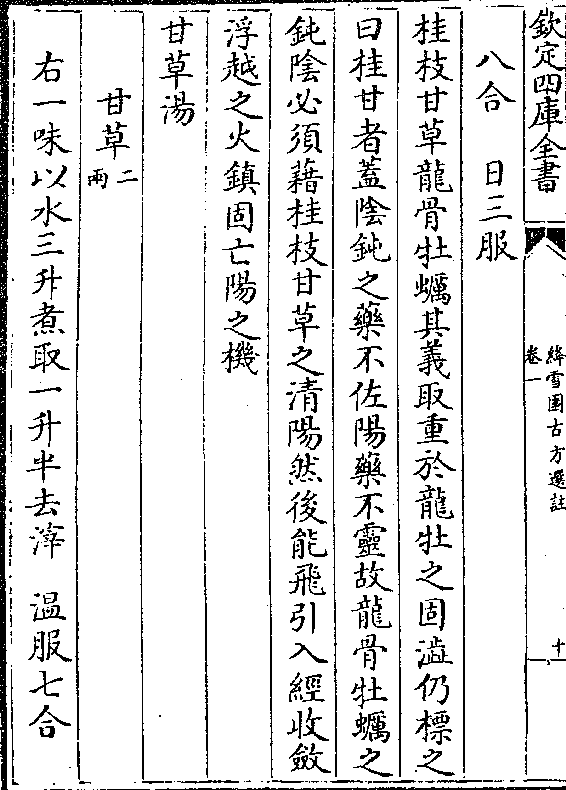 欽定四庫全書
絳雪園古方選註
卷一
十一
八合　日三服
桂枝甘草龍骨牡蠣其義取重於龍牡之固澁仍標之
曰桂甘者蓋陰鈍之藥不佐陽藥不靈故龍骨牡蠣之
鈍陰必須藉桂枝甘草之清陽然後能飛引入經收斂
浮越之火鎮固亡陽之機
甘草湯
甘草二兩
右一味以水三升煮取一升半去滓　温服七合